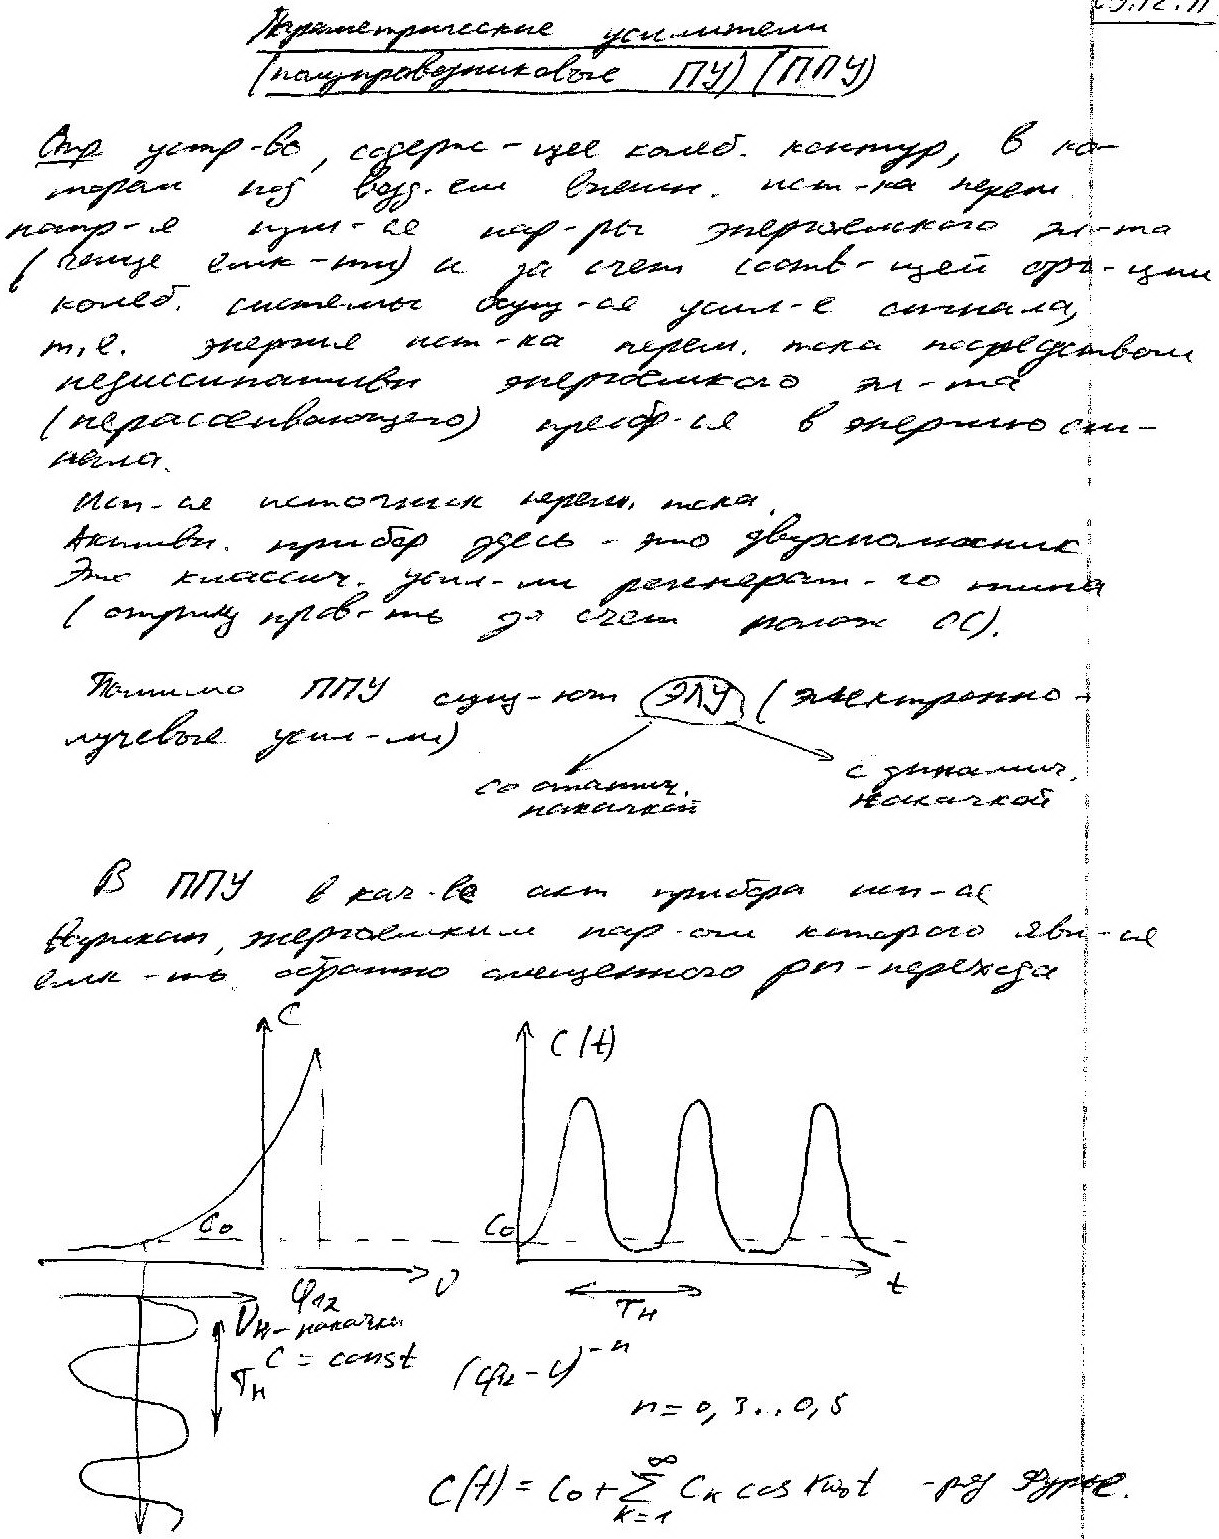 Параметрические усилители
(полупроводниковые ПУ) (ППУ)
Опр устр-во, содерж-щее колеб. контур, в ко-
тором под возд-ем внешн. ист-ка перем.
напр-я изм-ся пар-ры энергоемкого эл-та
(чаще емк-ти) и за счет соотв-щей орг-ции
колеб. системы осущ-ся усил-е сигнала,
т.е. энергия ист-ка перем. тока посредством
недиссипативн энергоемкого эл-та
(нерассеивающего) преобр-ся в энергию сиг-
нала.
Исп-ся источник перем. тока.
Активн. прибор здесь - это двухполюсник
Это классич. усил-ли регенерат-го типа
(отриц пров-ть за счет полож ОС).
Помимо ППУ сущ-ют ЭЛУ (электронно-
лучевые усил-ли)
со статич. накачкой
с динамич. накачкой
В ППУ в кач-ве акт прибора исп-ся
Варикап, энергоемким пар-ом которого явл-ся
емк-ть обратно смещенного pn-перехода
C
C(t)
C₀
C₀
U
t
φ₁₂
Tн
Uн-накачки
Tн
C = const (φ₁₂-U)⁻ⁿ
n=0,3..0,5
C(t) = C₀ + ∑ₖ₌₁^∞ Cₖ cos kω₀t - ряд Фурье.